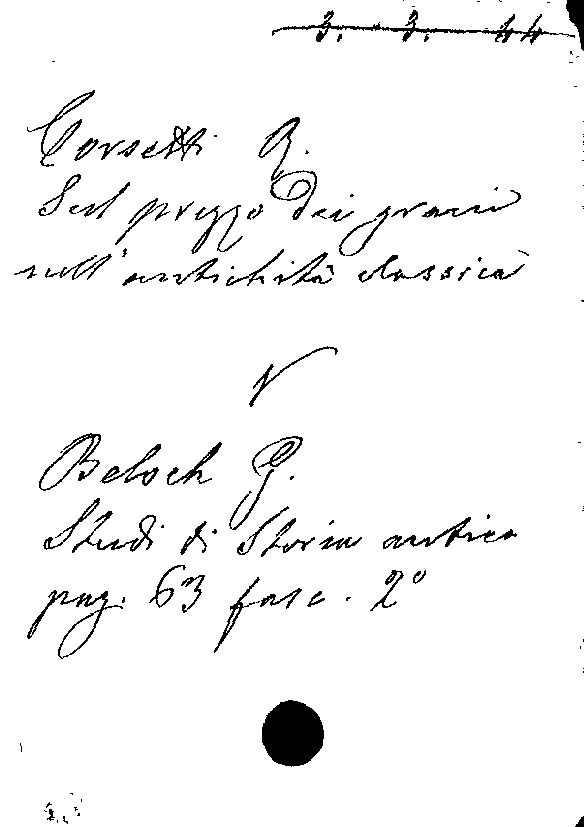 3. 3. 44
Corsetti R.
Sul prezzo dei grani
nell'antichità classica
V
Beloch G.
Studi di Storia antica
pag. 63 fasc. 2°